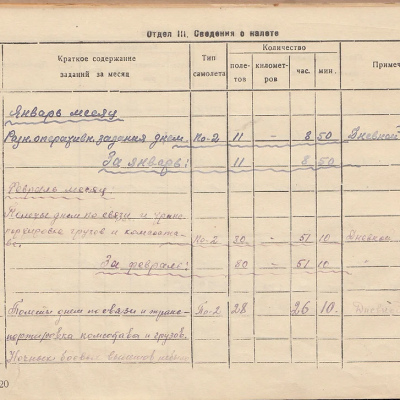 Отдел III. Сведения о налете
Краткое содержание заданий за месяц
Тип самолета
Количество
полетов
километров
час.
мин.
Примеч
Январь месяц
Разн. оперативн. задания днем. По-2 11 - 8 50 Дневной
За январь: 11 8 50
Февраль месяц
Полеты днем по связи и транс-
портировка грузов и комсоста-
ва. По-2 - 51 10 Дневной
За февраль: - 51 10
Полеты днем по связи и транс- По-2 28 26 10. Дневной
портировка комсостава и грузов.
Ночных боевых вылетов
20